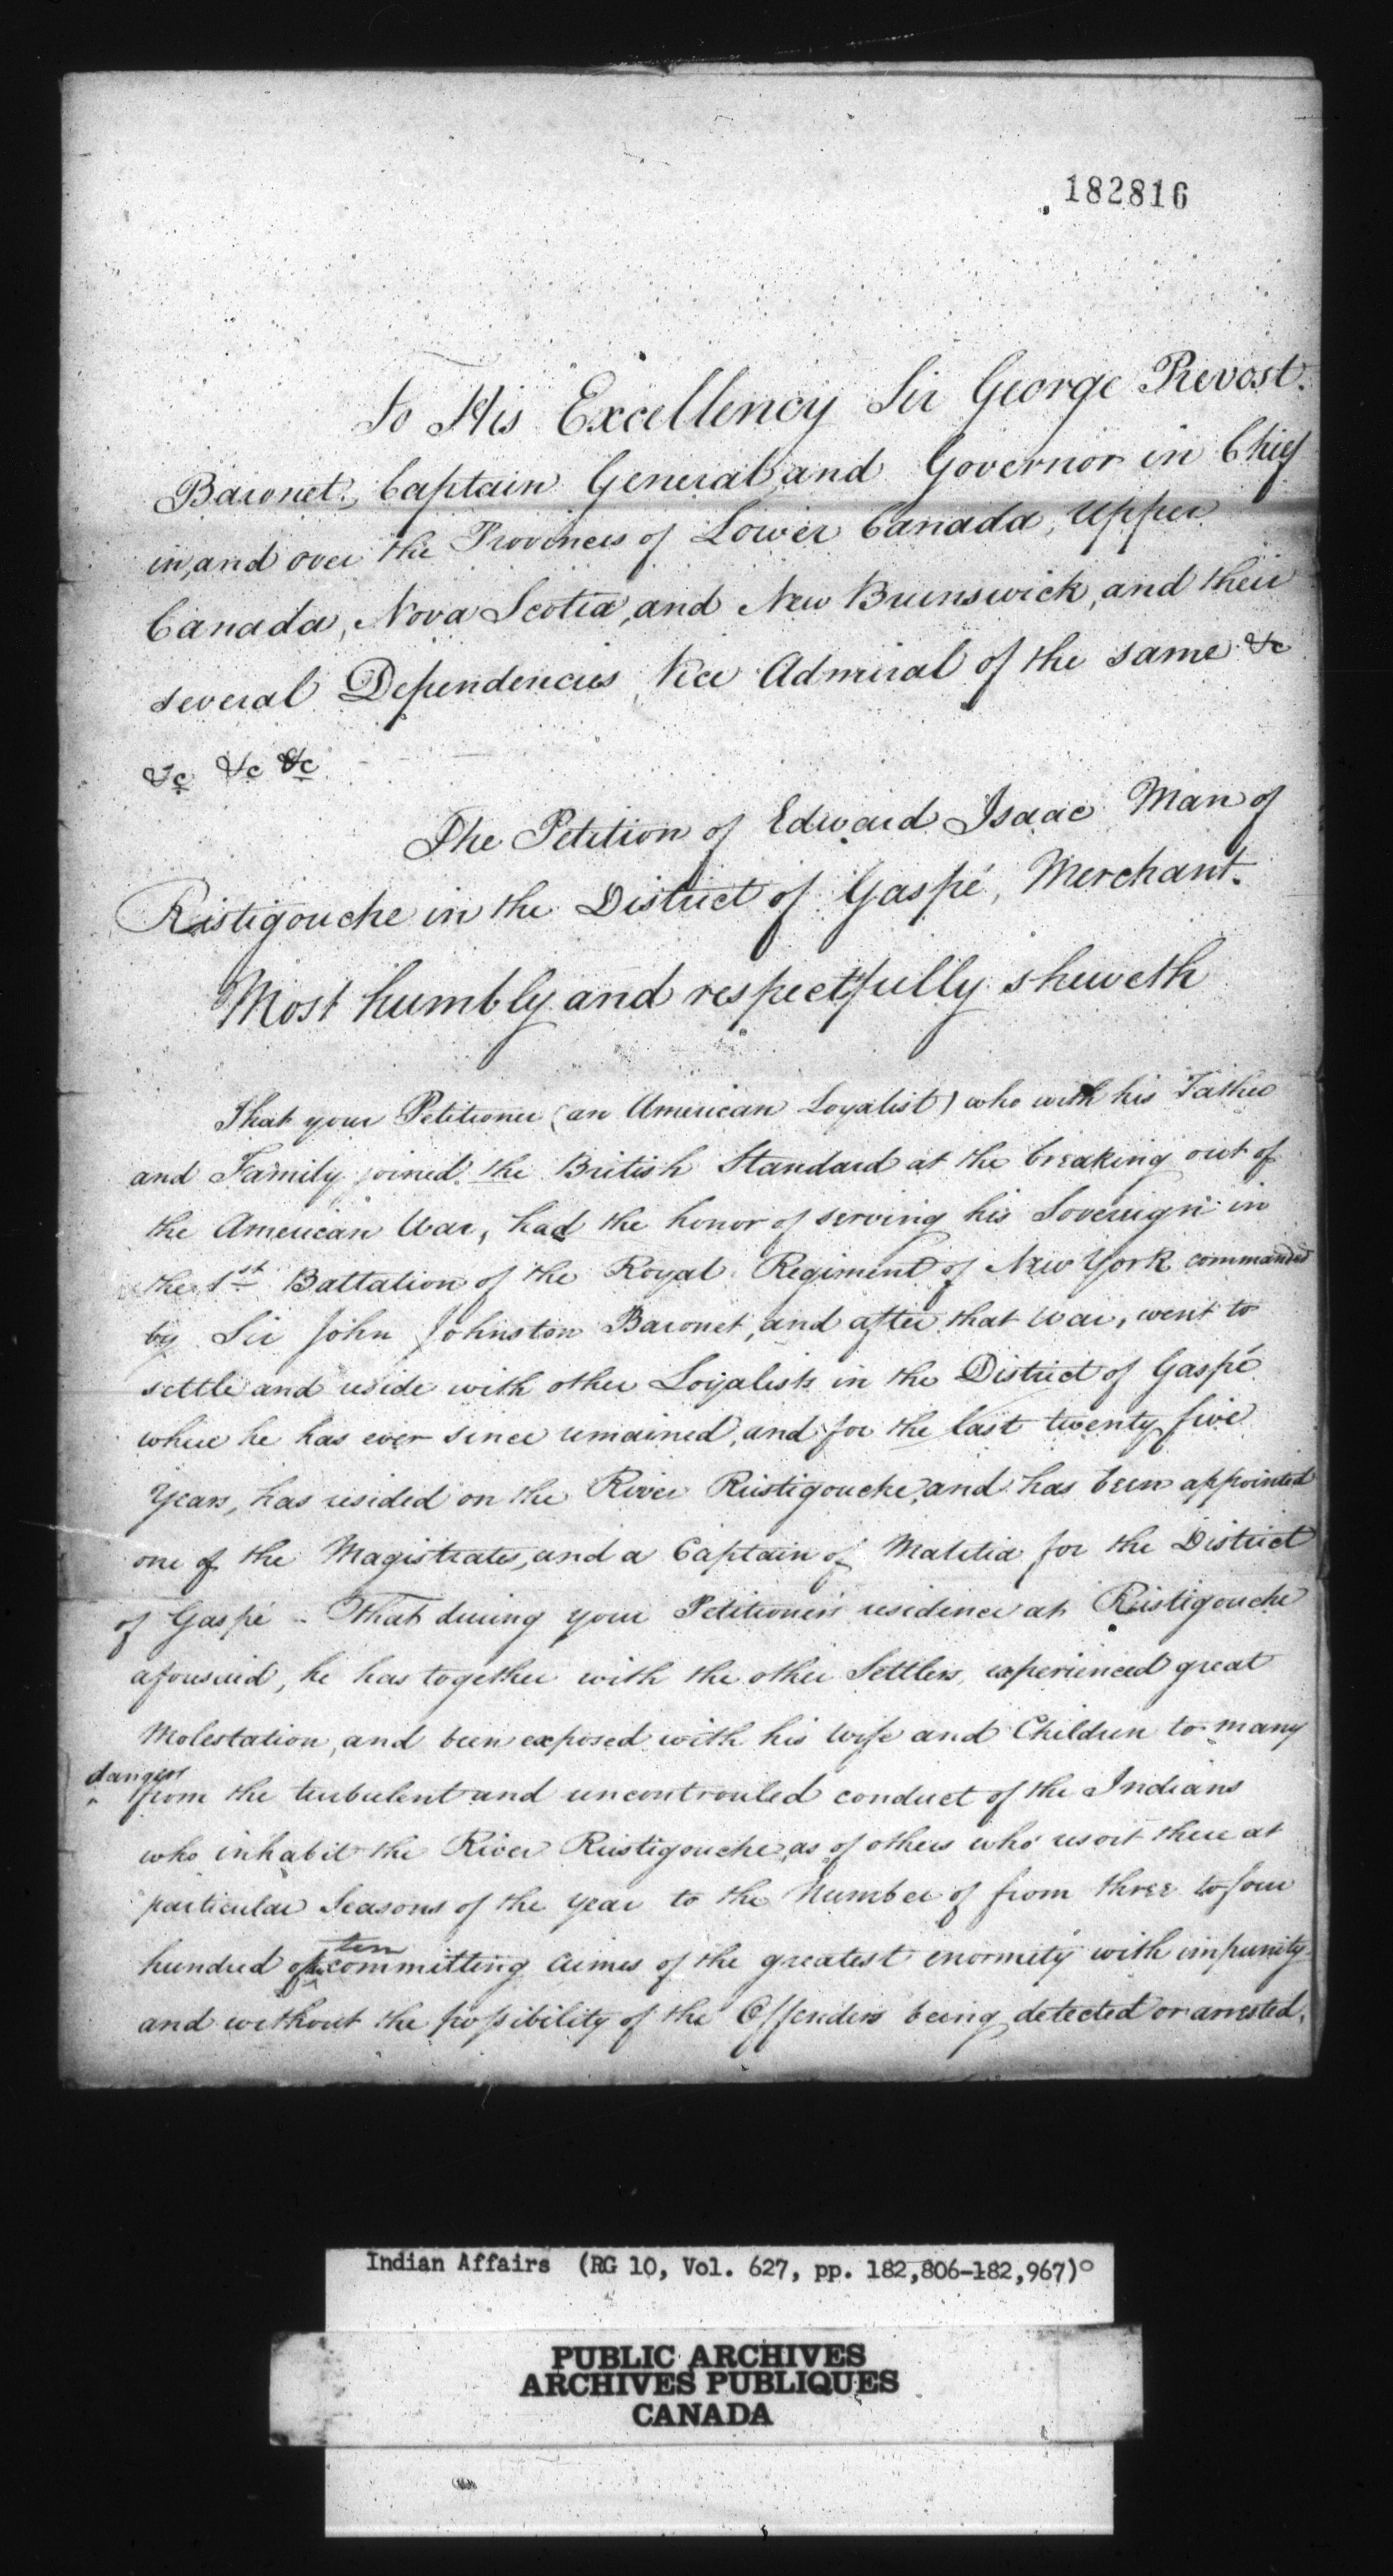 182816
To His Excellency Sir George Prevost.
Baronet, Captain General and Governor in Chief
in, and over the Provinces of Lower Canada, Upper
Canada, Nova Scotia, and New Brunswick, and their
several Dependencies, Vice Admiral of the same &c
&c &c &c
The Petition of Edward Isaac Man of
Ristigouche in the District of Gaspé, Merchant.
Most humbly and respectfully sheweth
That your Petitioner (an American Loyalist) who with his Father
and Family joined the British Standard at the breaking out of
the American War, had the honor of serving his Sovereign in
the 1st Battalion of the Royal Regiment of New York commanded
by Sir John Johnston Baronet, and after that war, went to
settle and reside with other Loyalists in the District of Gaspé
where he has ever since remained, and for the last twenty five
Years, has resided on the River Ristigouche, and has been appointed
one of the Magistrates, and a Captain of Malitia for the District
of Gaspé - That during your Petitioner's residence at Ristigouche
aforesaid, he has together with the other Settlers, experienced great
Molestation, and been exposed with his Wife and Children to many
dangers
from the turbulent and uncontrouled conduct of the Indians
who inhabit the River Ristigouche, as of others who resort there at
particular Seasons of the year to the Number of from three to four
ten
hundred of committing crimes of the greatest enormity with impunity
and without the possibility of the Offenders being detected or arrested.
Indian Affairs (RG 10, Vol. 627, pp. 182,806-182,967)
PUBLIC ARCHIVES
ARCHIVES PUBLIQUES
CANADA